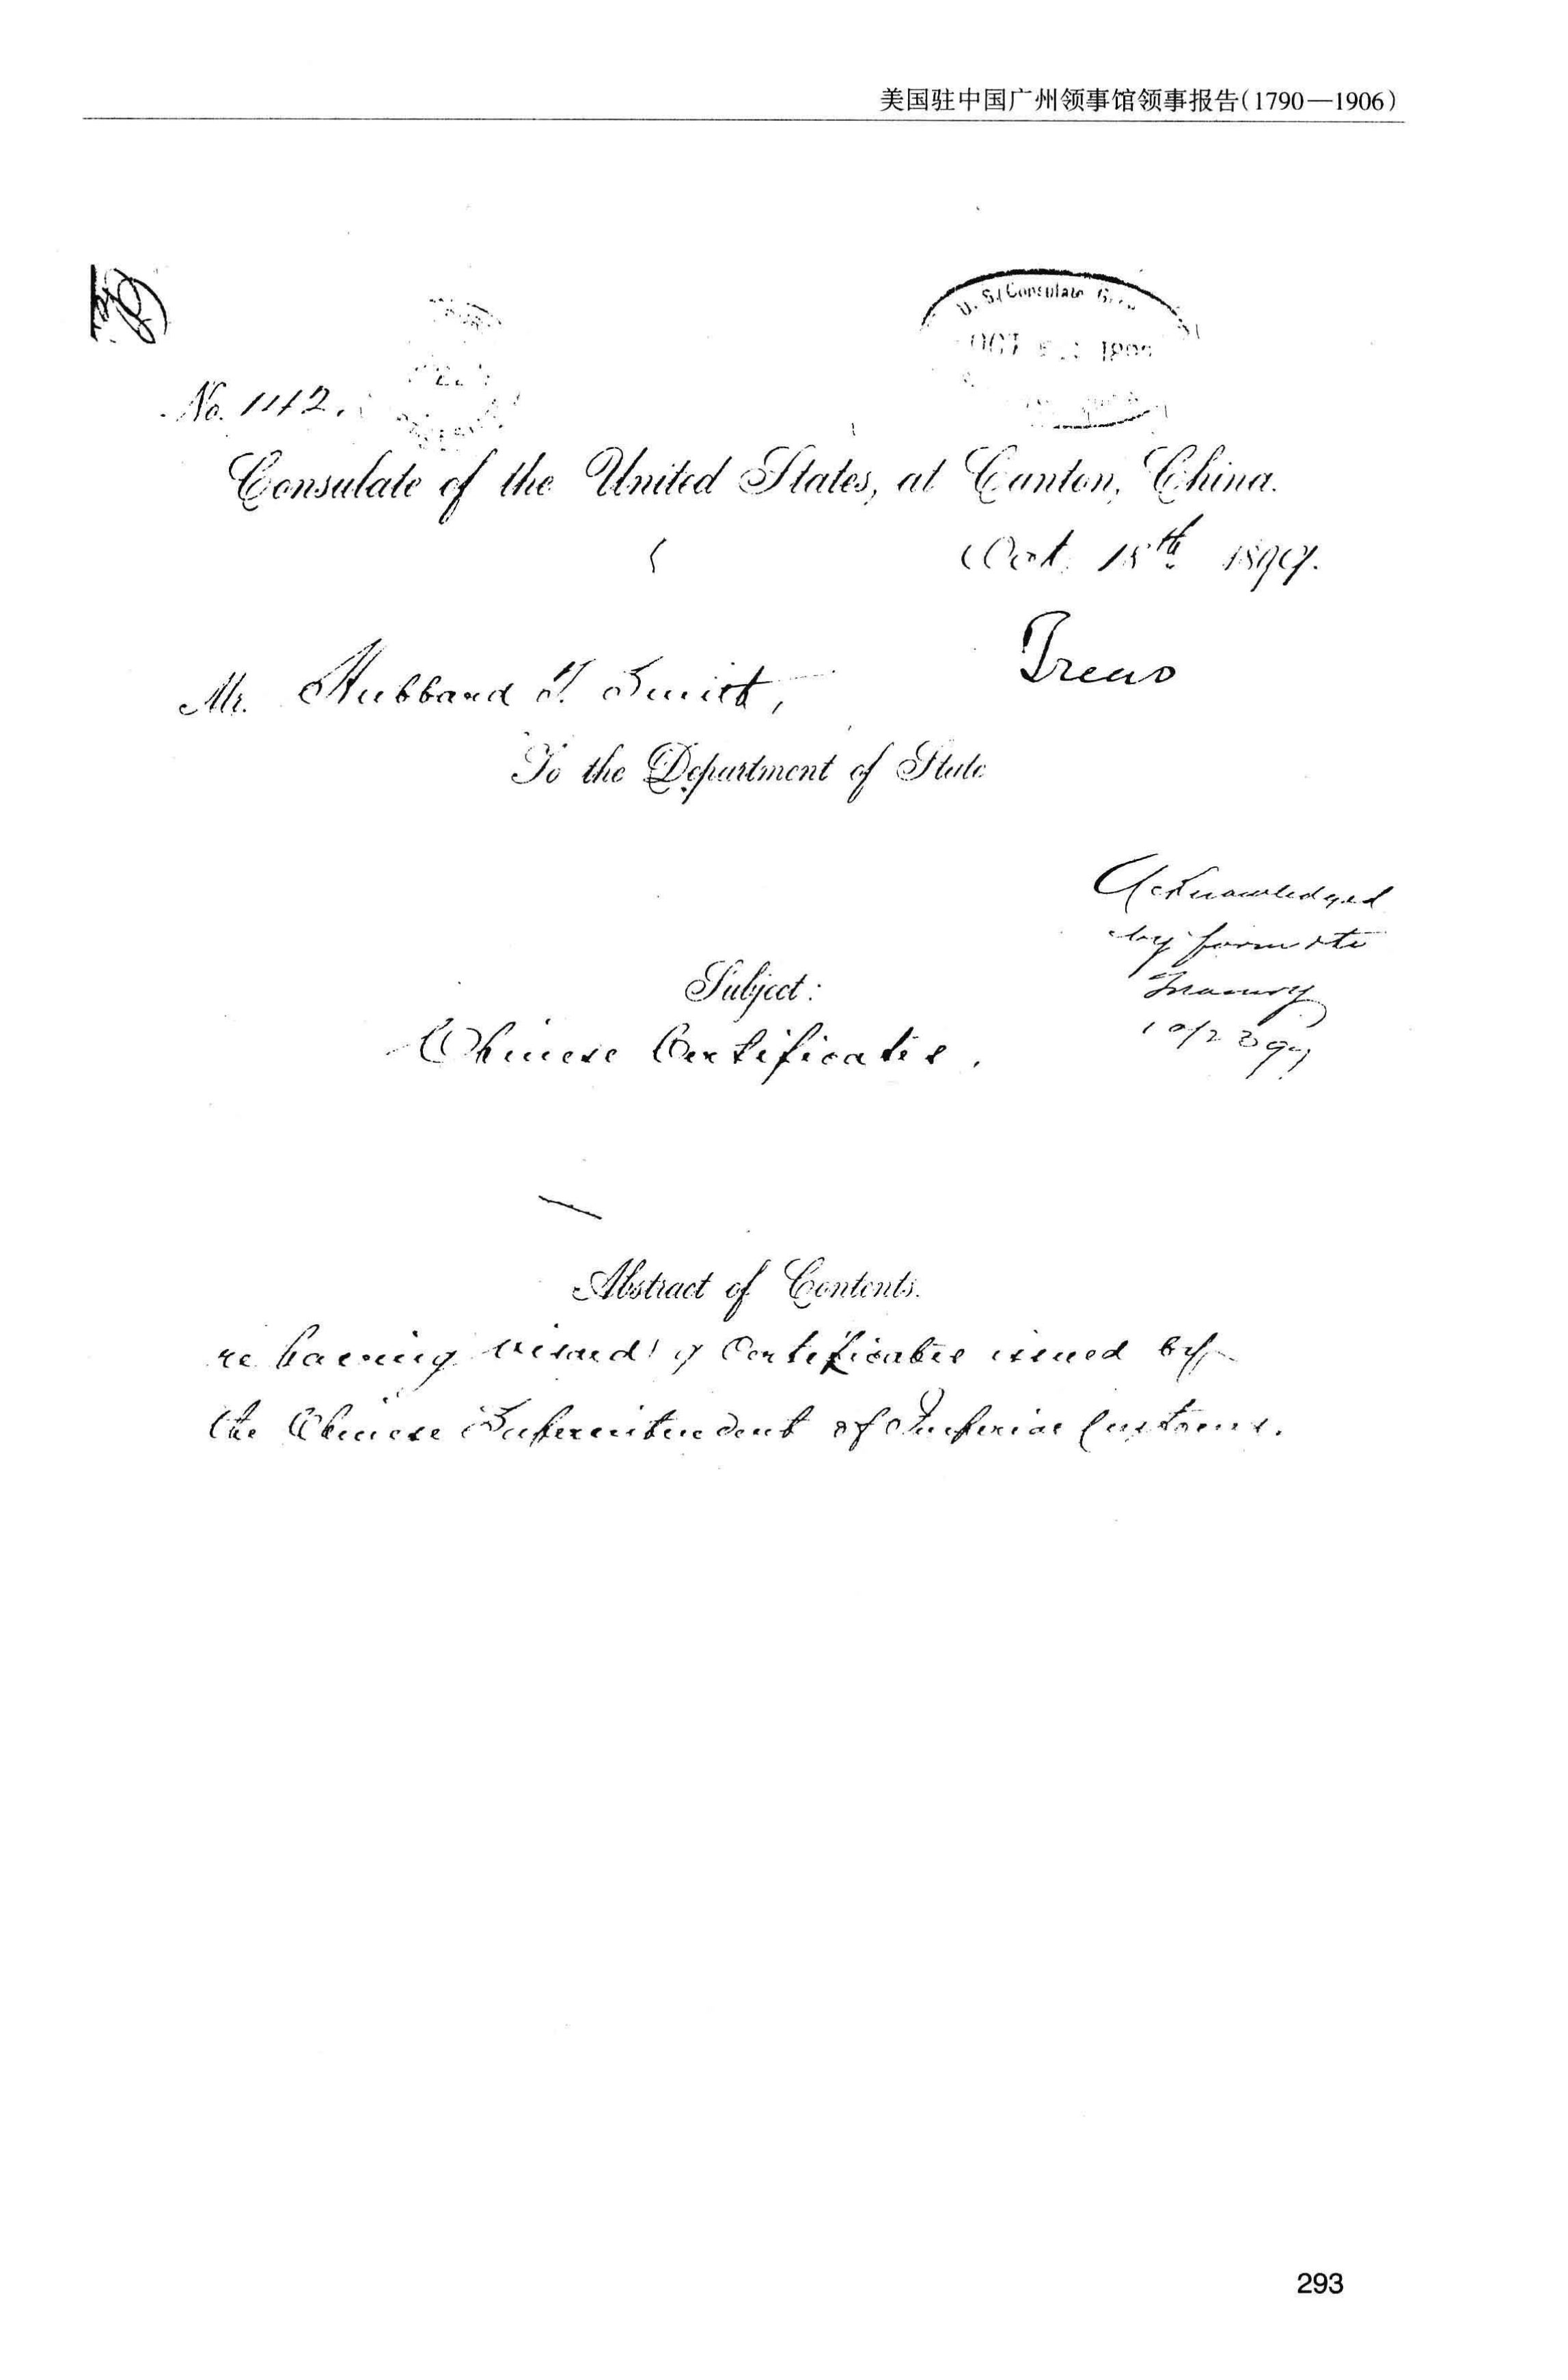 美国驻中国广州领事馆领事报告(1790—1906)
U. S. Consulate
OCT
No. 112.
Consulate of the United States, at Canton, China.
Oct. 18th 1899.
Treas
Mr. Hubbard T. Smith,
To the Department of State
Acknowledged
by form &
Treasury
10/23 99
Subject:
Chinese Certificates.
Abstract of Contents.
re having visaed Certificates issued by
the Chinese Superintendent of Imperial Customs.
293